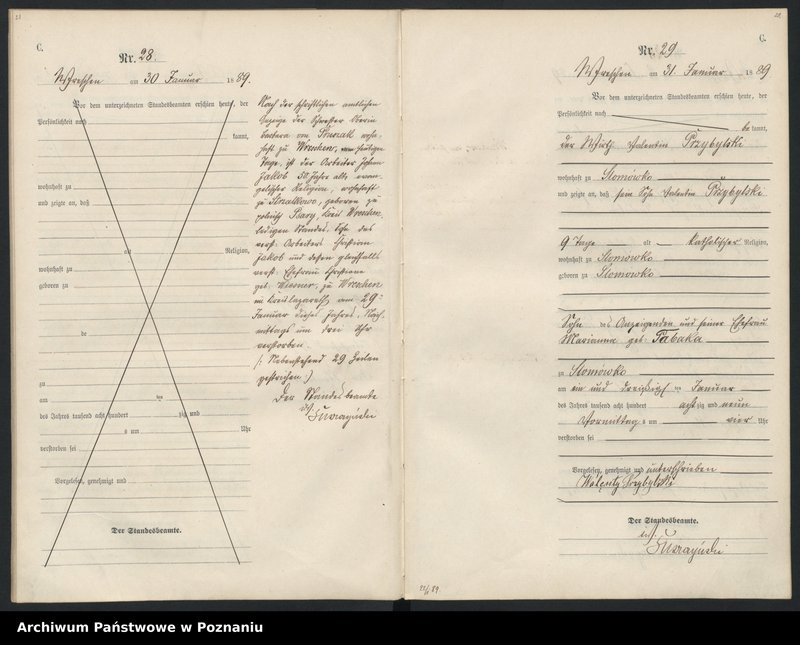 C.
Nr. 28.
Wreschen am 30 Januar 1889.
Vor dem unterzeichneten Standesbeamten erschien heute, der
Persönlichkeit nach
kannt,
wohnhaft zu
und zeigte an, daß
alt Religion,
wohnhaft zu
geboren zu
de
zu
am ten
des Jahres tausend acht hundert zig und
s um Uhr
verstorben sei
Vorgelesen, genehmigt und
Der Standesbeamte.
Nach der schriftlichen amtlichen
Anzeige der Schwester Oberin
Barbara von wohn-
haft zu Wreschen, vom heutigen
Tage, ist der Arbeiter Johann
Jakob 50 Jahre alt, evan-
gelischer Religion, wohnhaft
zu geboren zu
Psary, Kreis Wreschen,
ledigen Standes, Sohn des
verst. Arbeiters Christian
Jakob und dessen gleichfalls
verst. Ehefrau Christiane
geb. zu Wreschen
im Kreislazareth, am 29.
Januar dieses Jahres, Nach-
mittags um drei Uhr
verstorben.
(: Nebenstehend 29 Zeilen
gestrichen :)
Der Standesbeamte
C.
Nr. 29
Wreschen am 31. Januar 1889
Vor dem unterzeichneten Standesbeamten erschien heute, der
Persönlichkeit nach
be kannt,
der Wirth Valentin Przybylski
wohnhaft zu Słomówko
und zeigte an, daß sein Sohn Valentin Przybylski
9 Tage alt Katholischer Religion,
wohnhaft zu Słomówko
geboren zu Słomówko
Sohn des Anzeigenden und seiner Ehefrau
Marianna geb. Tabaka
zu Słomówko
am ein und dreißigsten Januar
des Jahres tausend acht hundert acht zig und neun
Vormittags um vier Uhr
verstorben sei
Vorgelesen, genehmigt und unterschrieben
Walenty Przybylski
Der Standesbeamte.
Archiwum Państwowe w Poznaniu